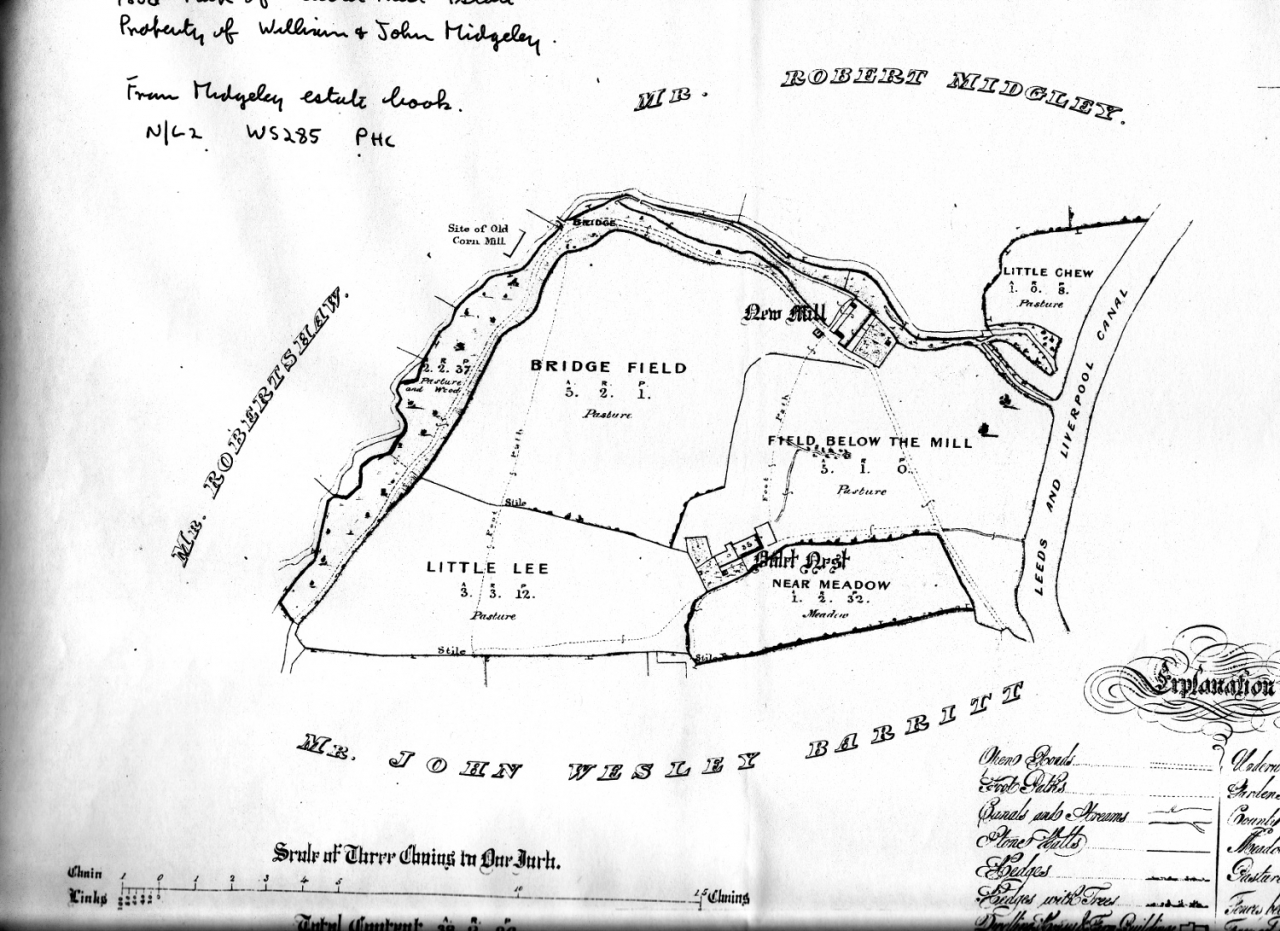 Property of William & John Midgeley.
From Midgeley estate book.
N/L2 WS285 PHC
MR. ROBERT MIDGLEY.
Site of Old
Corn Mill
BRIDGE
LITTLE CHEW
A. R. P.
1. 0. 8.
Pasture
New Mill
MR. ROBERTSHAW.
A. R. P.
2. 2. 37.
Pasture
and Wood
BRIDGE FIELD
A. R. P.
5. 2. 1.
Pasture
Foot Path
FIELD BELOW THE MILL
A. R. P.
5. 1. 0.
Pasture
Foot Path
LEEDS AND LIVERPOOL CANAL
Stile
LITTLE LEE
A. R. P.
3. 3. 12.
Pasture
Nest
NEAR MEADOW
A. R. P.
1. 2. 32.
Meadow
Stile
Stile
MR. JOHN WESLEY BARRITT
Explanation
Open Roads
Foot Paths
Canals and Streams
Stone Walls
Hedges
Hedges with Trees
Pasture
Scale of Three Chains to One Inch.
Chain 1 0 1 2 3 4 5 10 15 Chains
Links
Total Content